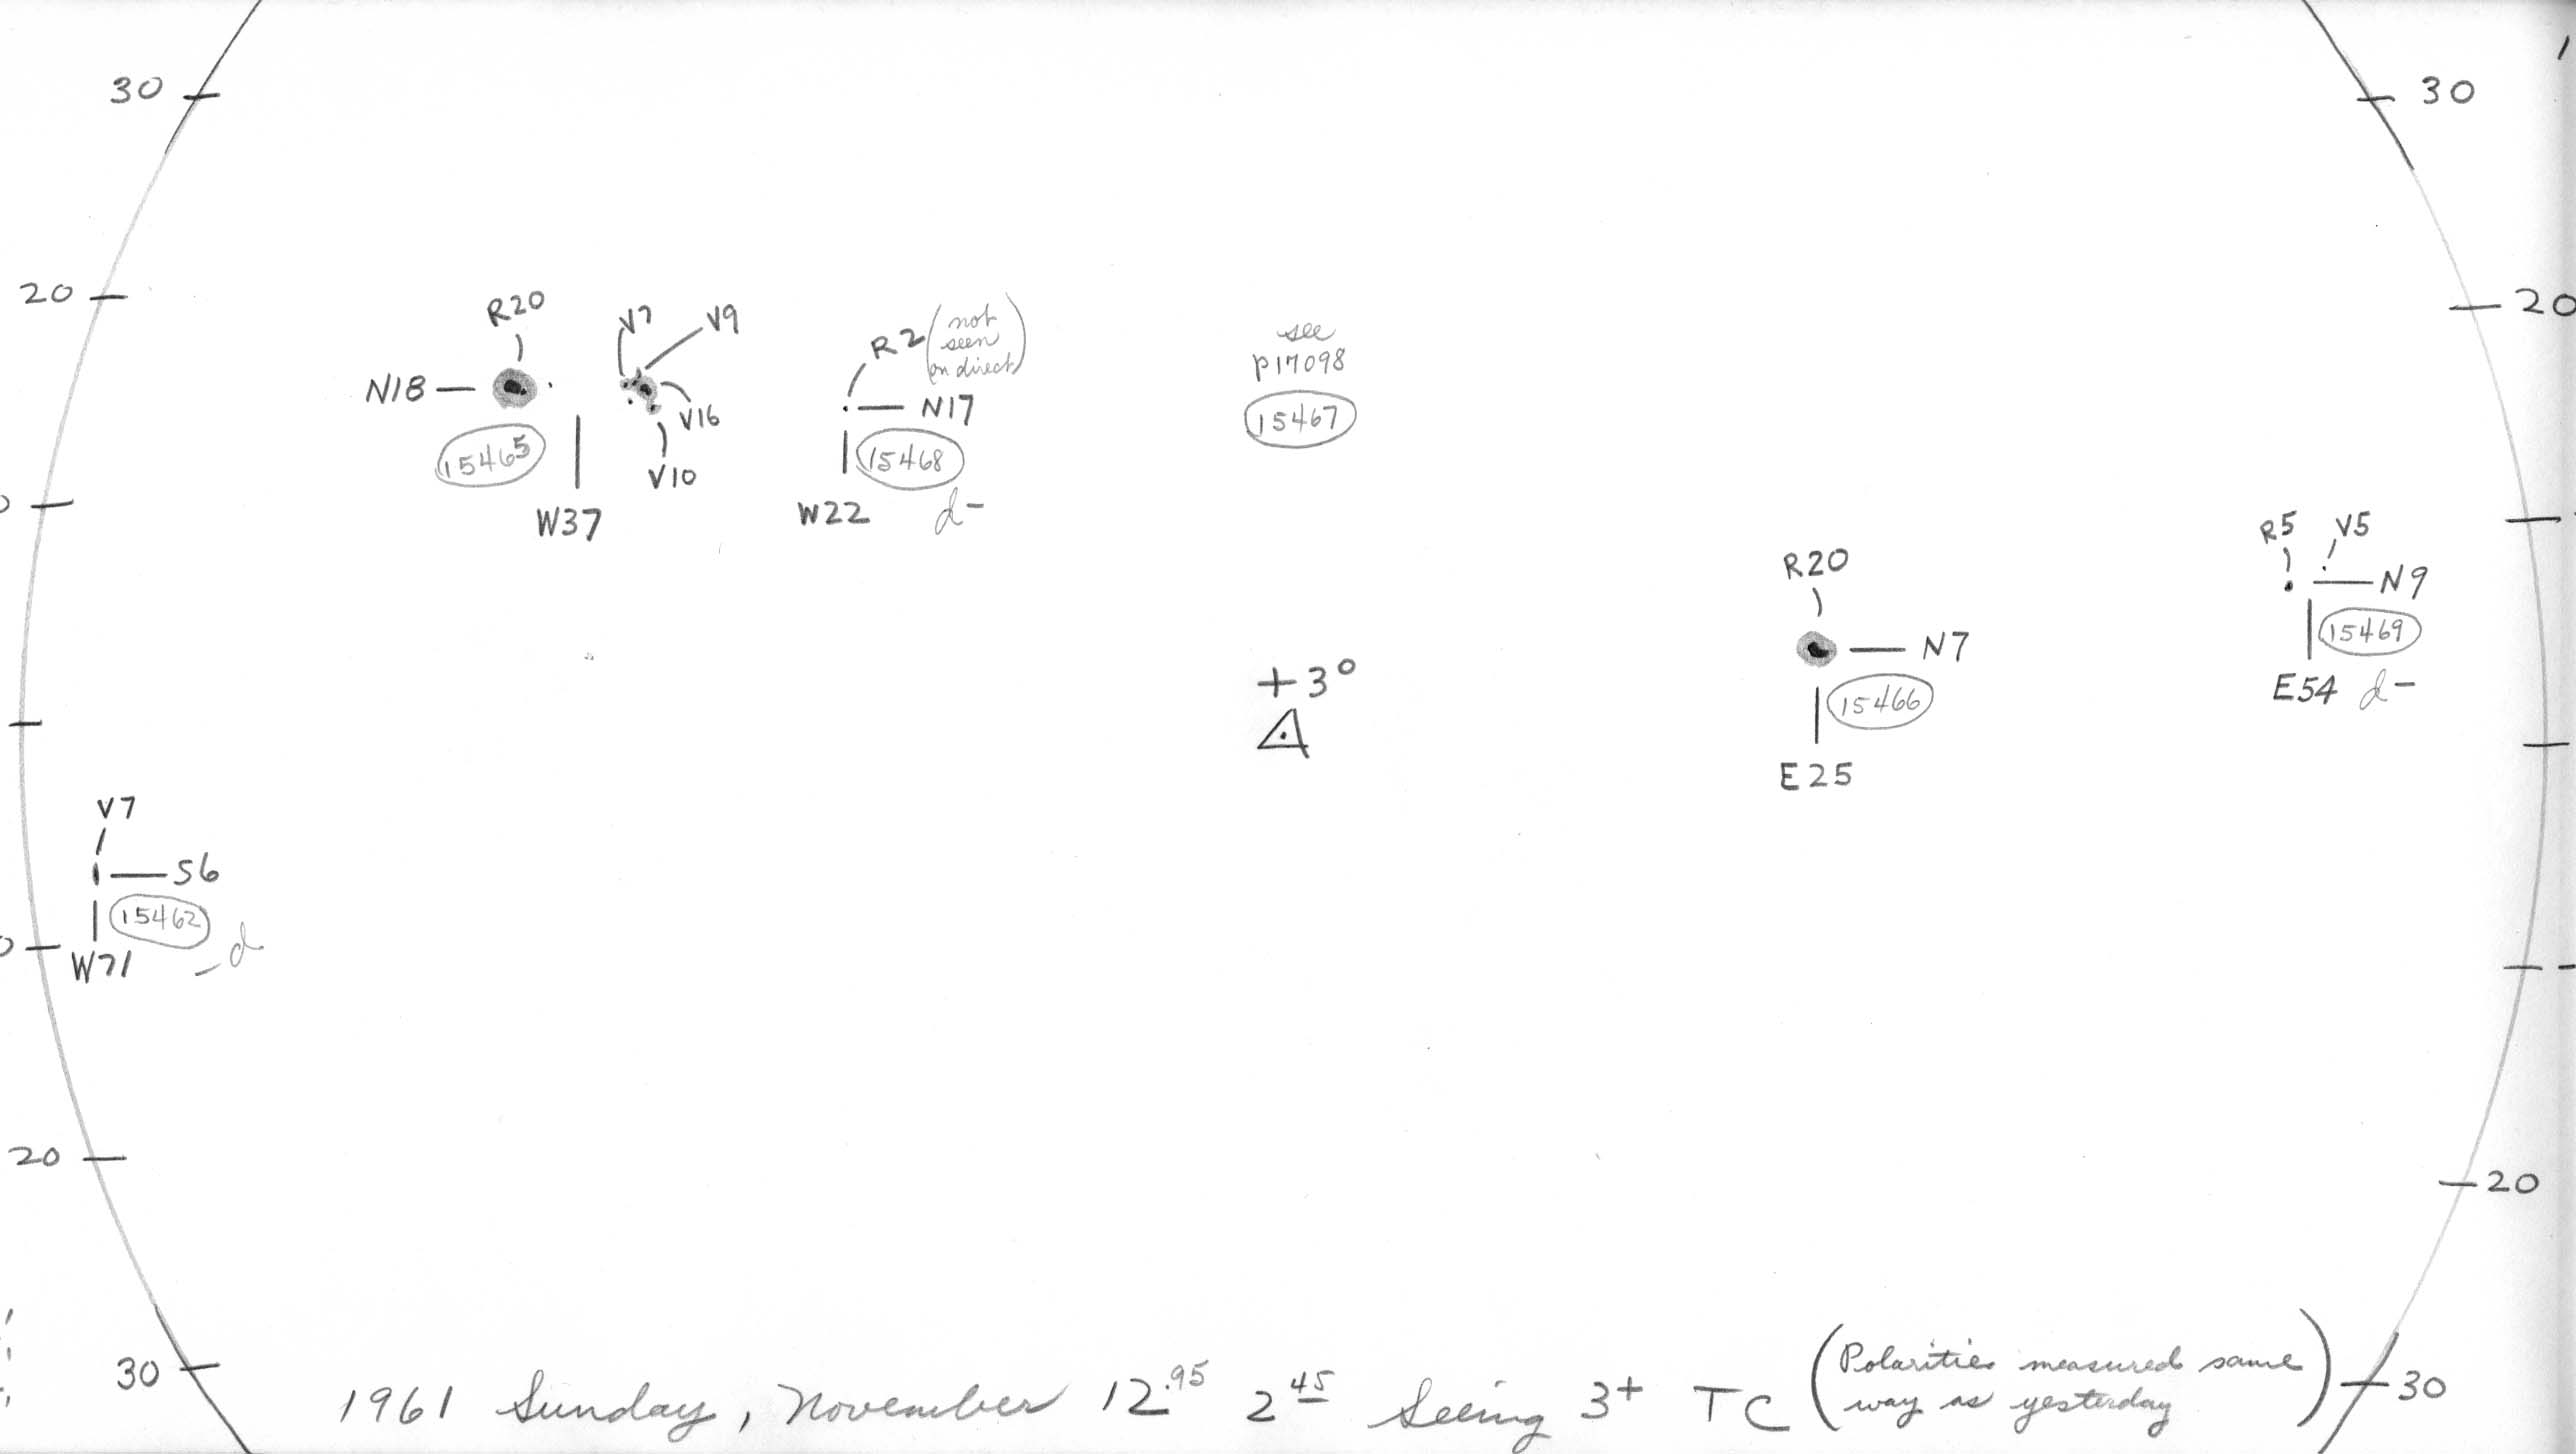 30
30
20
20
R20
V7
V9
N18
V16
V10
15465
W37
R2 (not seen on direct)
N17
15468
W22
d-
see
p17098
15467
R5
V5
N9
15469
E54 d-
R20
N7
15466
E25
+3°
V7
S6
15462
W71
-d
20
20
30
30
1961 Sunday, November 12.95 2 45 Seeing 3+ TC (Polarities measured same
way as yesterday)